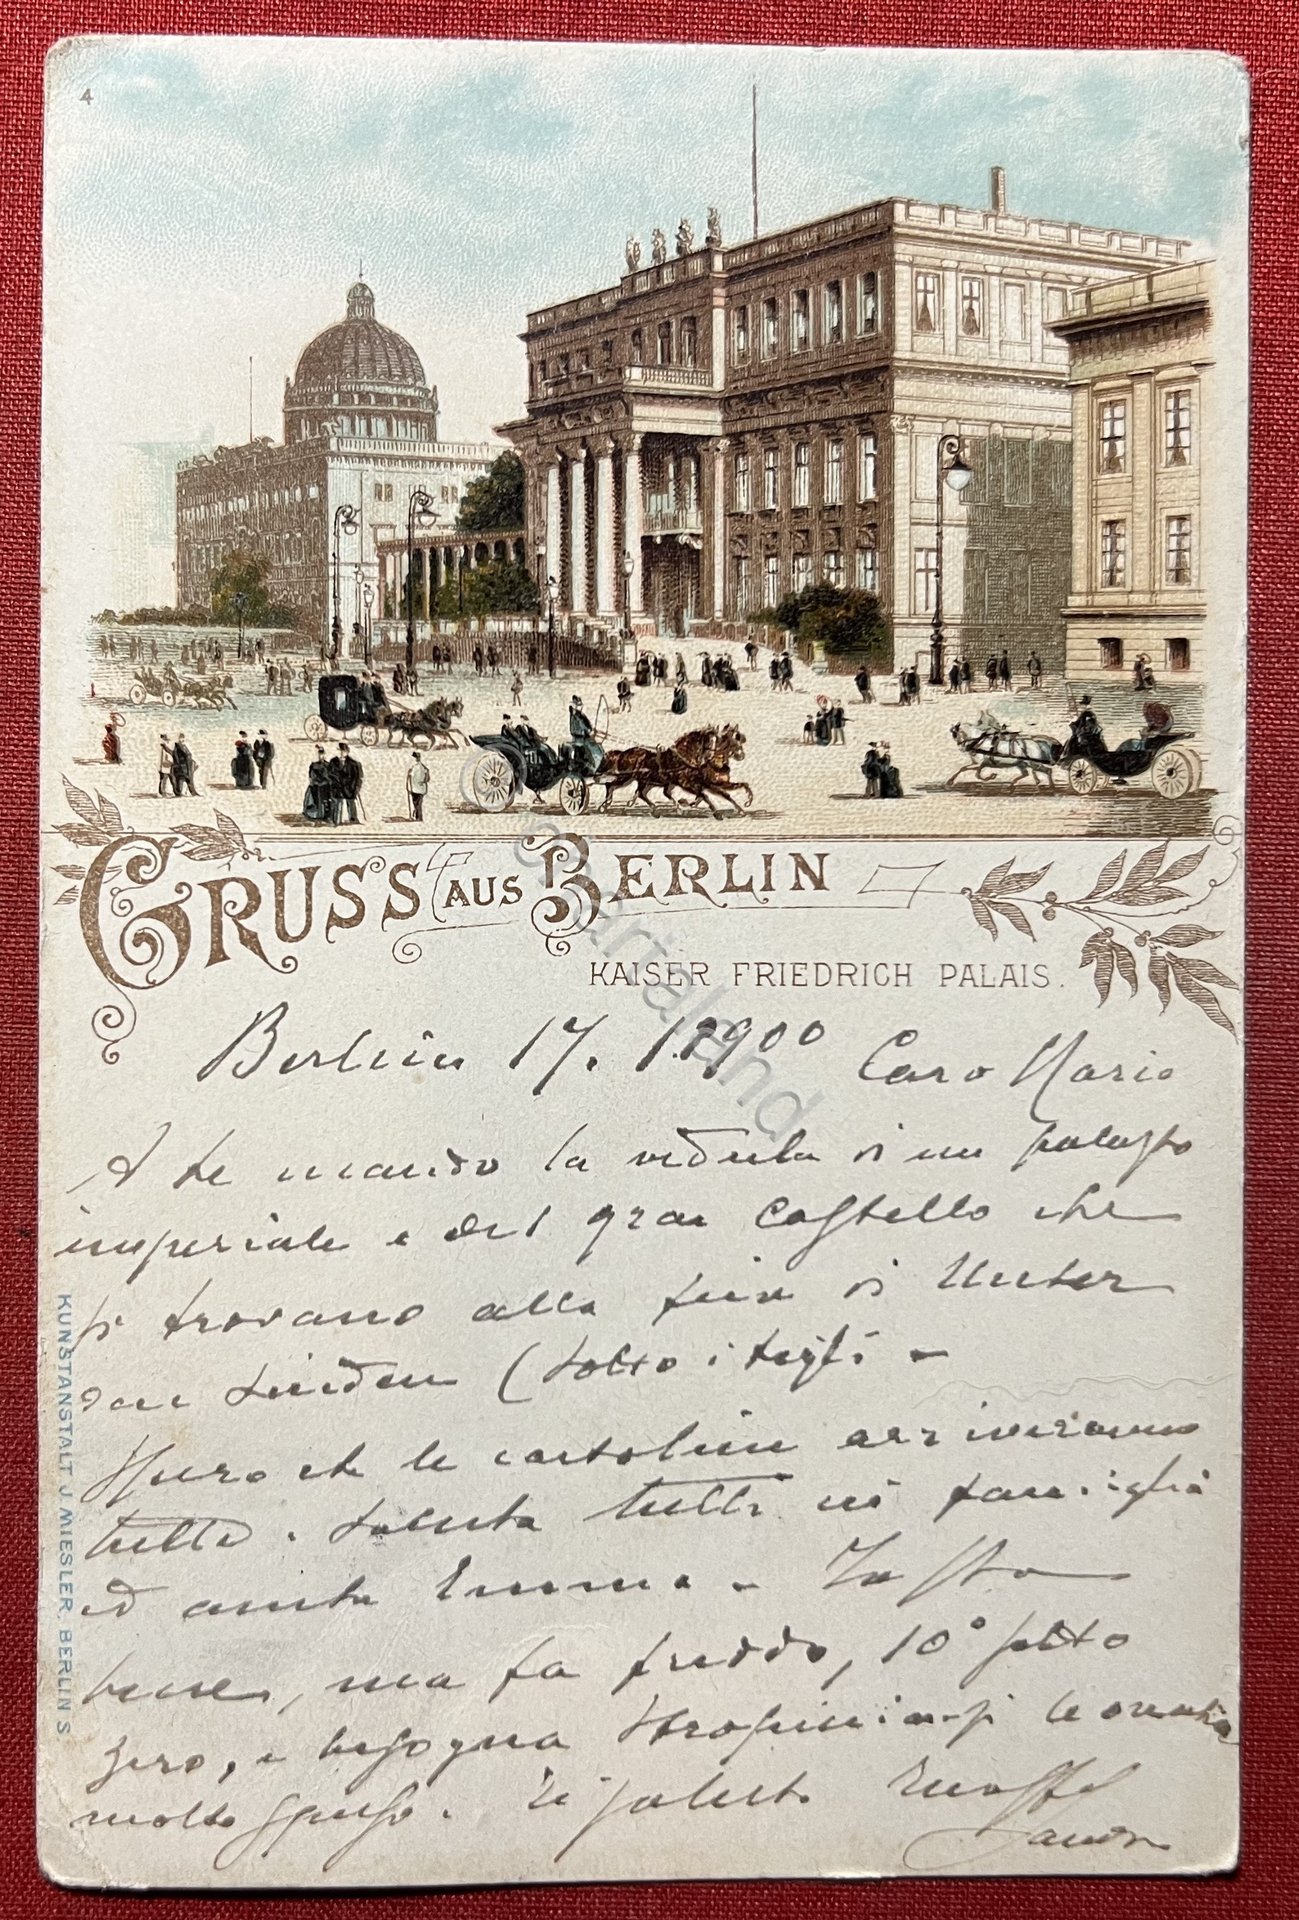 4
GRUSS AUS BERLIN
KAISER FRIEDRICH PALAIS.
Berlin 17. 1. 1900 Caro Mario
A te mando la veduta di un palazzo
imperiale e del gran Castello che
si trovano alla fine di Unter
den Linden (sotto i tigli -
Spero che le cartoline arriveranno
tutte. Saluta tutti in famiglia
ed anita Emma. - Io sto
bene, ma fa freddo, 10° sotto
zero, e bisogna stropicciarsi le orecchie
molto spesso. Ti saluto
KUNSTANSTALT J. MIESLER, BERLIN S
cartaland